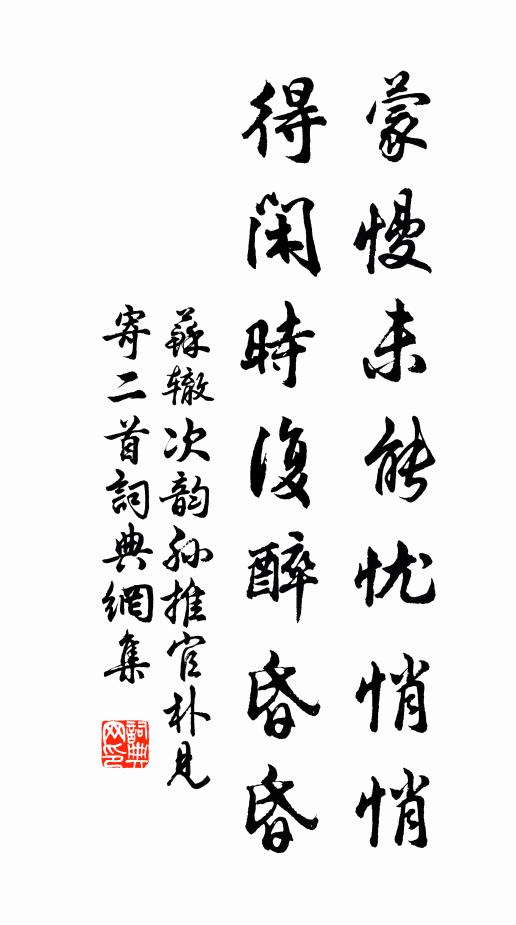 蒙慢未能忧悄悄
得闲時復醉昏昏
蘇辙次韵孙推官朴見
寄二首詞典網集
詞典
网印